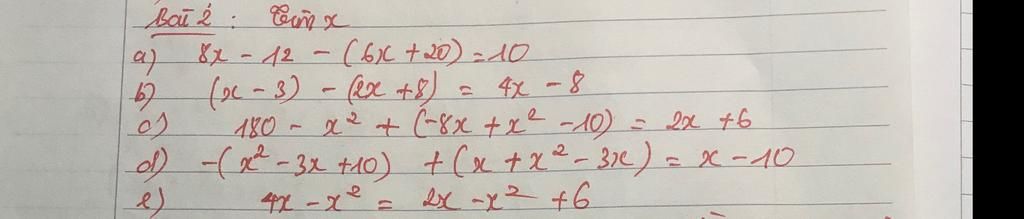 Bài 2 : Tìm x
a) 8x - 12 - (6x + 20) = 10
b) (x - 3) - (2x + 8) = 4x - 8
c) 180 - x² + (-8x + x² - 10) = 2x + 6
d) -(x² - 3x + 10) + (x + x² - 3x) = x - 10
e) 4x - x² = 2x - x² + 6